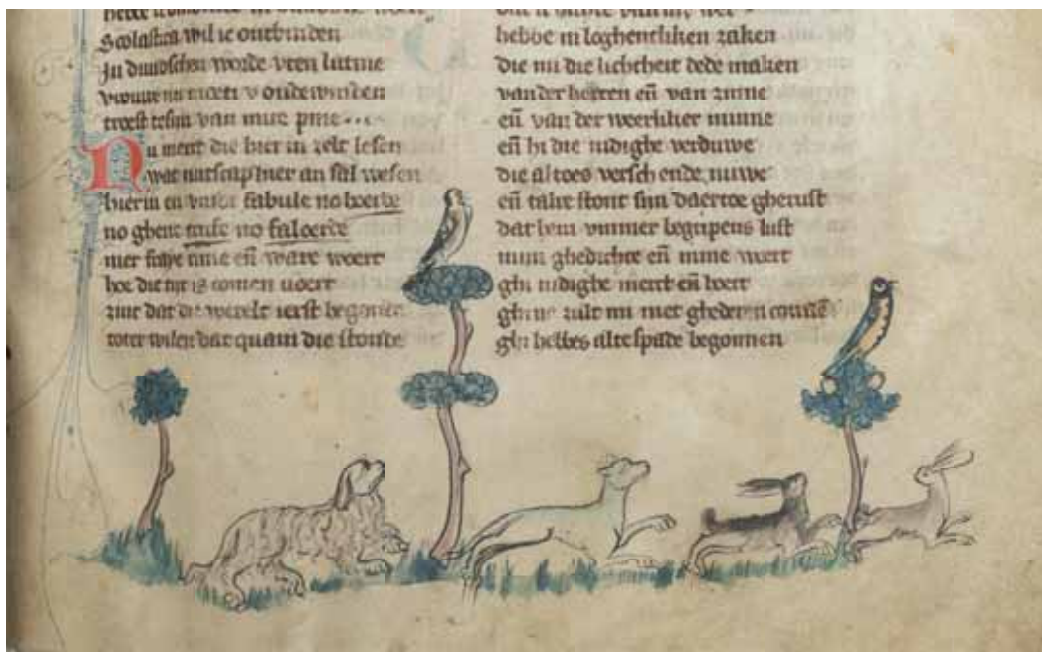 Scolastica wil ic ontbinden
In duudschen worde vten latine
vrouwe nu moeti v onderwinden
troest te sijn van mire pine
Nu merct die hier in zelt lesen
wat nutscap hier an sal wesen
hierin en vindi fabule no boerde
no ghene trufe no faloerde
mer rime en̄ ware woert
hoe die tijt is comen voert
zint dat die werelt ierst
toter wilen dat quam die stonde
hebbe in loghentliken zaken
die mi die lichtheit dede maken
van der herten en̄ van zinne
en̄ van der weerliker minne
en̄ hi die nidighe verduwe
die altoes versch ende nuwe
en̄ stont sijn daertoe gherust
dat hem vmmer begripens lust
mijn ghedichte en̄ mine
ghi nidighe merct en̄ hoert
ghine zult mi niet ghederen connē
ghi hebbes alte spade begonnen